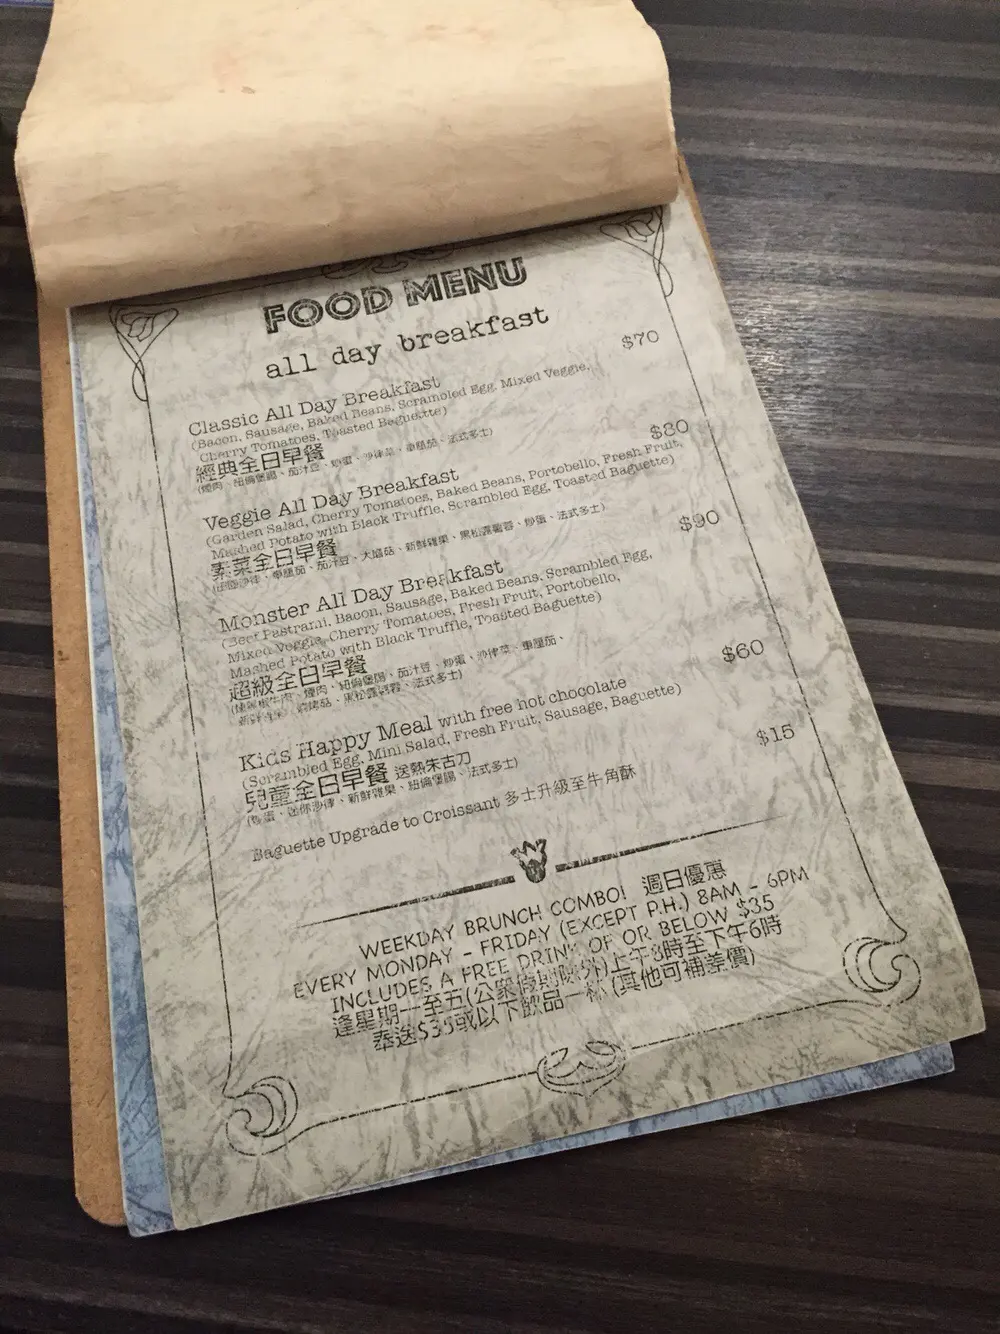 FOOD MENU
all day breakfast
Classic All Day Breakfast $70
(Bacon, Sausage, Baked Beans, Scrambled Egg, Mixed Veggie,
Cherry Tomatoes, Toasted Baguette)
經典全日早餐
(煙肉、紐倫堡腸、茄汁豆、炒蛋、沙律菜、車厘茄、法式多士)
Veggie All Day Breakfast $80
(Garden Salad, Cherry Tomatoes, Baked Beans, Portobello, Fresh Fruit,
Mashed Potato with Black Truffle, Scrambled Egg, Toasted Baguette)
素菜全日早餐
(田園沙律、車厘茄、茄汁豆、大磨菇、新鮮雜果、黑松露薯蓉、炒蛋、法式多士)
Monster All Day Breakfast $90
(Beef Pastrami, Bacon, Sausage, Baked Beans, Scrambled Egg,
Mixed Veggie, Cherry Tomatoes, Fresh Fruit, Portobello,
Mashed Potato with Black Truffle, Toasted Baguette)
超級全日早餐
煙肉、紐倫堡腸、茄汁豆、炒蛋、沙律菜、車厘茄、
黑松露薯蓉、法式多士)
Kids Happy Meal with free hot chocolate $60
(Scrambled Egg, Mini Salad, Fresh Fruit, Sausage, Baguette)
兒童全日早餐 送熱朱古力
(炒蛋、迷你沙律、新鮮雜果、紐倫堡腸、法式多士)
Baguette Upgrade to Croissant 多士升級至牛角酥 $15
WEEKDAY BRUNCH COMBO! 週日優惠
EVERY MONDAY - FRIDAY (EXCEPT P.H.) 8AM - 6PM
INCLUDES A FREE DRINK OF OR BELOW $35
逢星期一至五(公眾假期除外)上午8時至下午6時
奉送$35或以下飲品一杯 (其他可補差價)